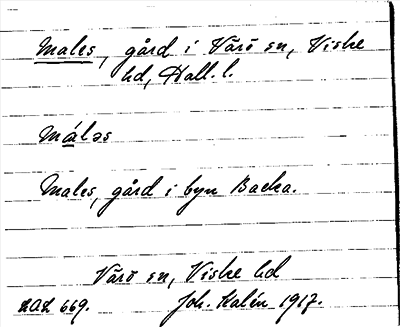 Males, gård i Värö sn, Viske
hd, Hall. l.
máləs
Males, gård i byn Backa.
Värö sn, Viske hd
ZAL 669. Joh. Kalén 1917.